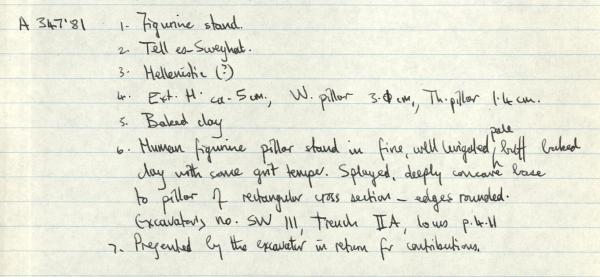 A 347'81 1. Figurine stand.
2. Tell es-Sweyhat.
3. Hellenistic (?)
4. Ext. H. ca. 5 cm, W. pillar 3.0 cm, Th. pillar 1.4 cm.
5. Baked clay
6. Human figurine pillar stand in fine, well levigated, pale buff baked
clay with some grit temper. Splayed, deeply concave base
to pillar of rectangular cross section - edges rounded.
Excavator's no. SW III, Trench IIA, locus p.4.11
7. Presented by the excavator in return for contributions.